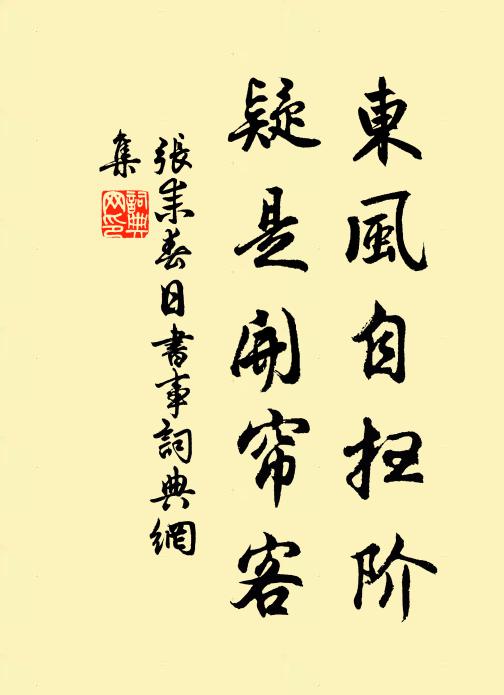 東風自扫阶
疑是開帘客
張耒春日書事詞典網
集
詞典網印